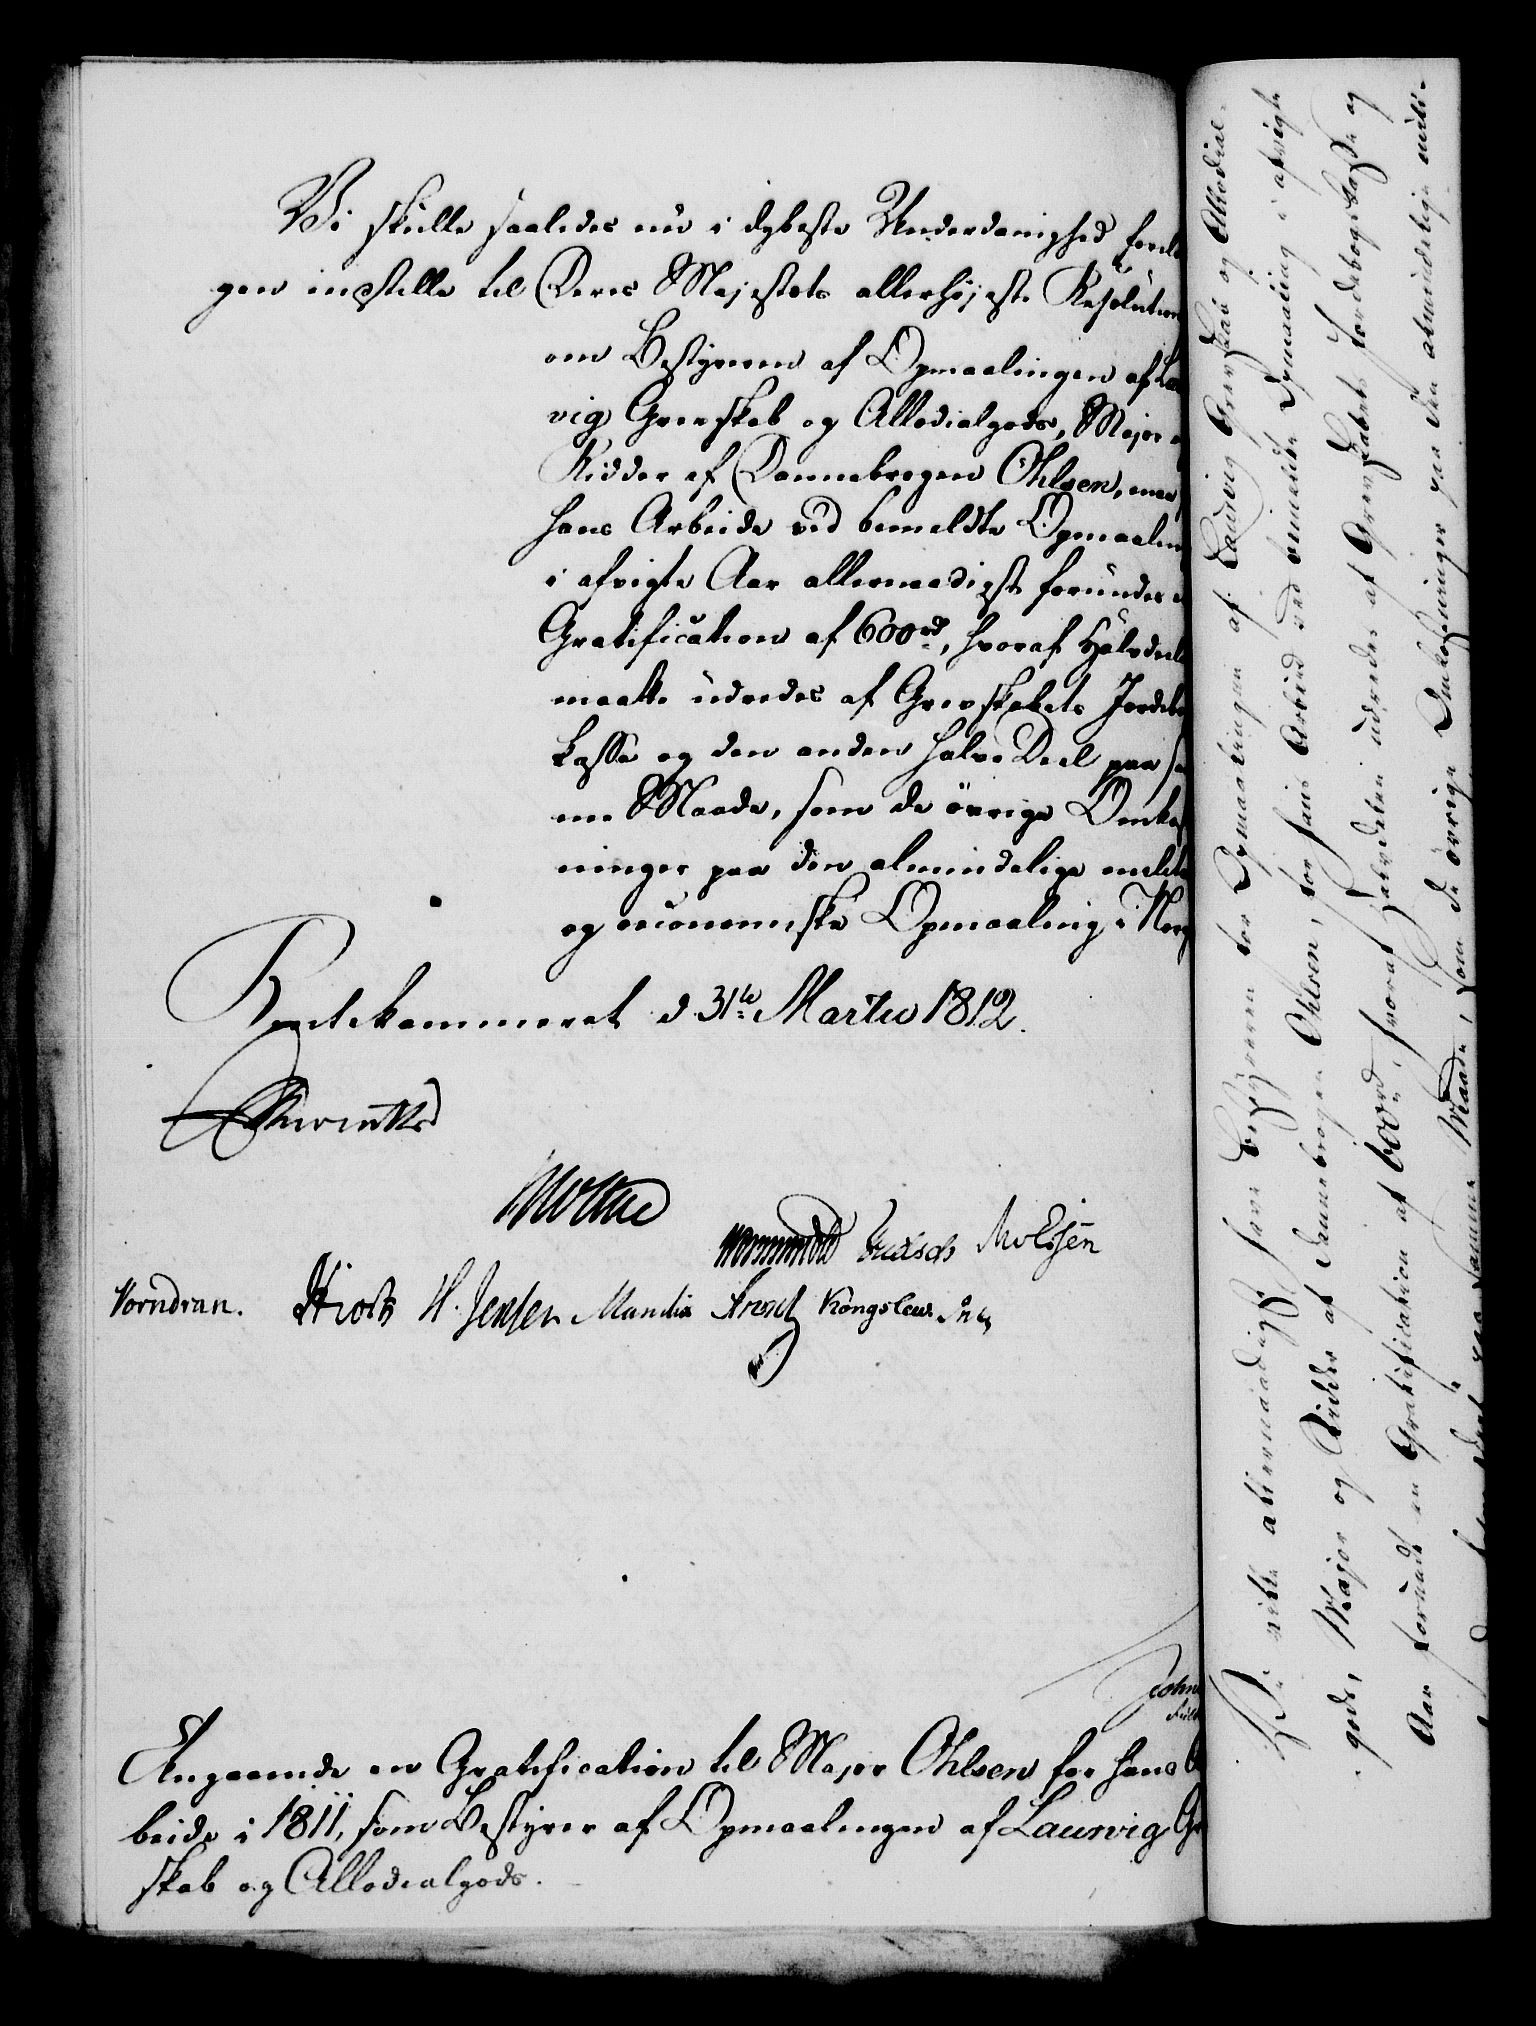 Vi skulle saaledes nu i dybeste Underdanighed forelæg
gen indstille til Deres Majestæts allerhøjeste Resolution
om Bestyreren af Opmaalingen af Lau
vig Grevskab og Allodialgods, Major o
Ridder af Dannebrogen Öhlsen, maa
hans Arbeide ved bemeldte Opmaalin
i afvigte Aar allernaadigst forundes e
Gratification af 600 rd, hvoraf Halvdeele
maatte udredes af Grevskabets Jordebo
kasse og den anden halve Deel paa sa
me Maade, som de övrige Omkost
ninger paa den almindelige milit
og oeconomiske Opmaaling i Norg
Rentekammeret d. 31te Martii 1812.
Moltke
Wormskiold Knudsen
Vorndran. Hiort H. Jensen Manthe Arent Kongslew
John
Angaaende en Gratification til Major Öhlsen for hans A
beide i 1811, som Bestyrer af Opmaalingen af Laurvig Gr
skab og Allodialgods.
Vi ville allernaadigst have Bestyreren for Opmaalingen af Laurvig Grevskab og Allodial-
gods, Major og Ridder af Dannebrogen Öhlsen, for hans Arbeid ved bemeldte Opmaaling i afvigte
Aar forundt en Gratification af 600 rd, hvoraf Halvdelen udredes af Grevskabets Jordebogskasse og
paa samme Maade, som de övrige Omkostninger paa den almindelige mili-